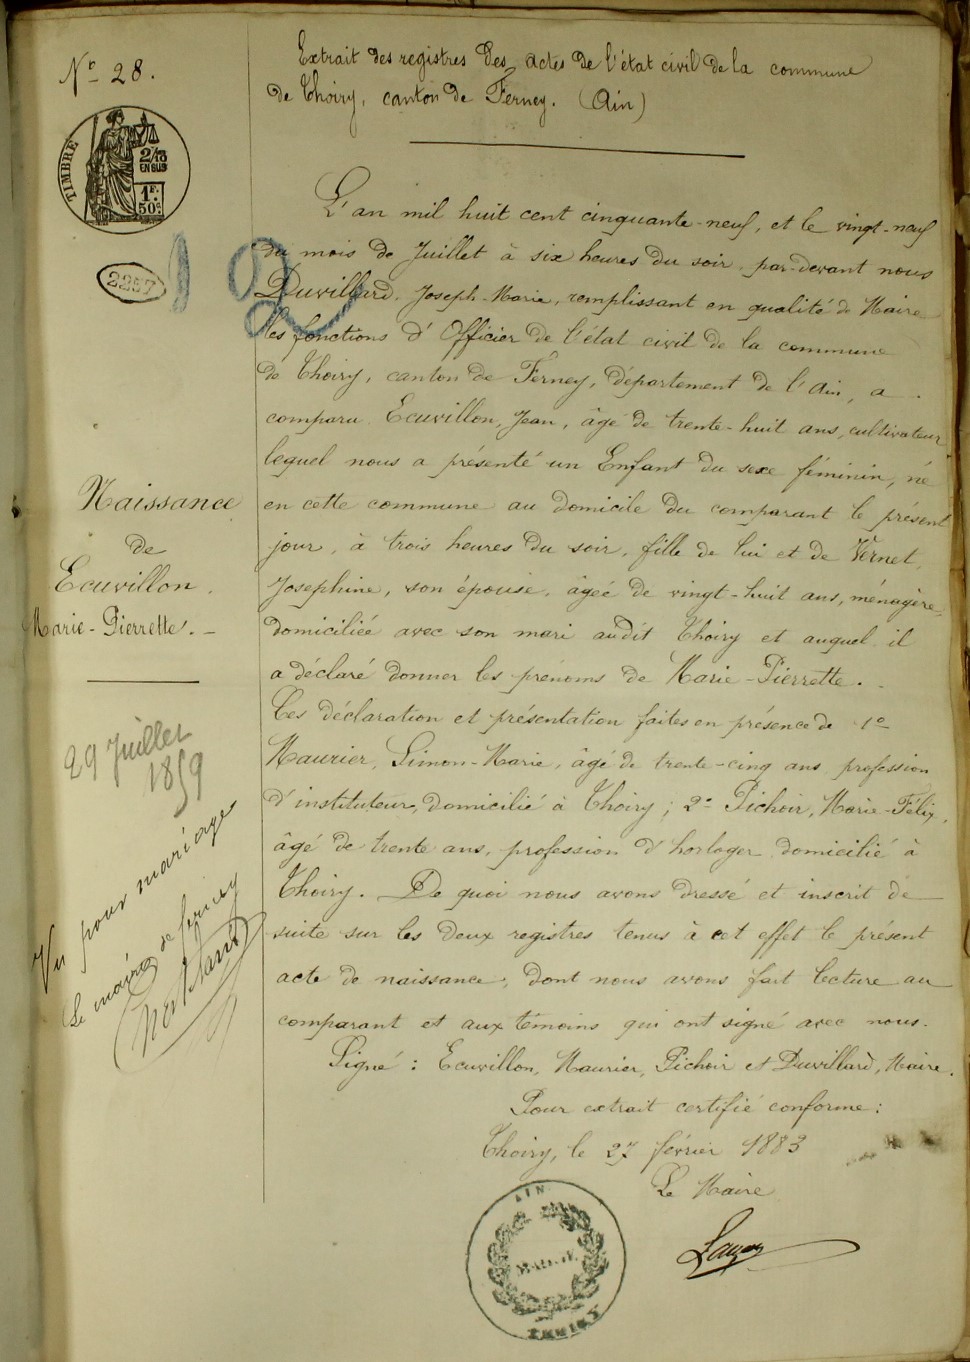 Nº 28.
Extrait des registres des actes de l'état civil de la commune
de Thoiry, canton de Ferney. (Ain)
TIMBRE
2/10
EN SUS
1F.
50c.
2257
L'an mil huit cent cinquante-neuf, et le vingt-neuf
du mois de Juillet à six heures du soir par-devant nous
Duvillard, Joseph-Marie, remplissant en qualité de Maire
les fonctions d'Officier de l'état civil de la commune
de Thoiry, canton de Ferney, département de l'Ain, a
comparu Ecuvillon, Jean, âgé de trente-huit ans, cultivateur
lequel nous a présenté un Enfant du sexe féminin, né
en cette commune au domicile du comparant le présent
jour, à trois heures du soir, fille de lui et de Vernet,
Josephine, son épouse, âgée de vingt-huit ans, ménagère,
domiciliée avec son mari audit Thoiry et auquel il
a déclaré donner les prénoms de Marie-Pierrette.
Ces déclaration et présentation faites en présence de 1º
Maurier, Simon-Marie, âgé de trente-cinq ans, profession
d'instituteur, domicilié à Thoiry; 2º Pichoir, Marie-Félix,
âgé de trente ans, profession d'horloger domicilié à
Thoiry. De quoi nous avons dressé et inscrit de
suite sur les deux registres tenus à cet effet le présent
acte de naissance, dont nous avons fait lecture au
comparant et aux témoins qui ont signé avec nous.
Signé: Ecuvillon, Maurier, Pichoir et Duvillard, Maire.
Pour extrait certifié conforme:
Thoiry, le 27 février 1883
Le Maire
Naissance
de
Ecuvillon.
Marie-Pierrette.
29 Juillet
1859
Vu pour mariage
Le maire de ferney
AIN
MAIRIE
THOIRY